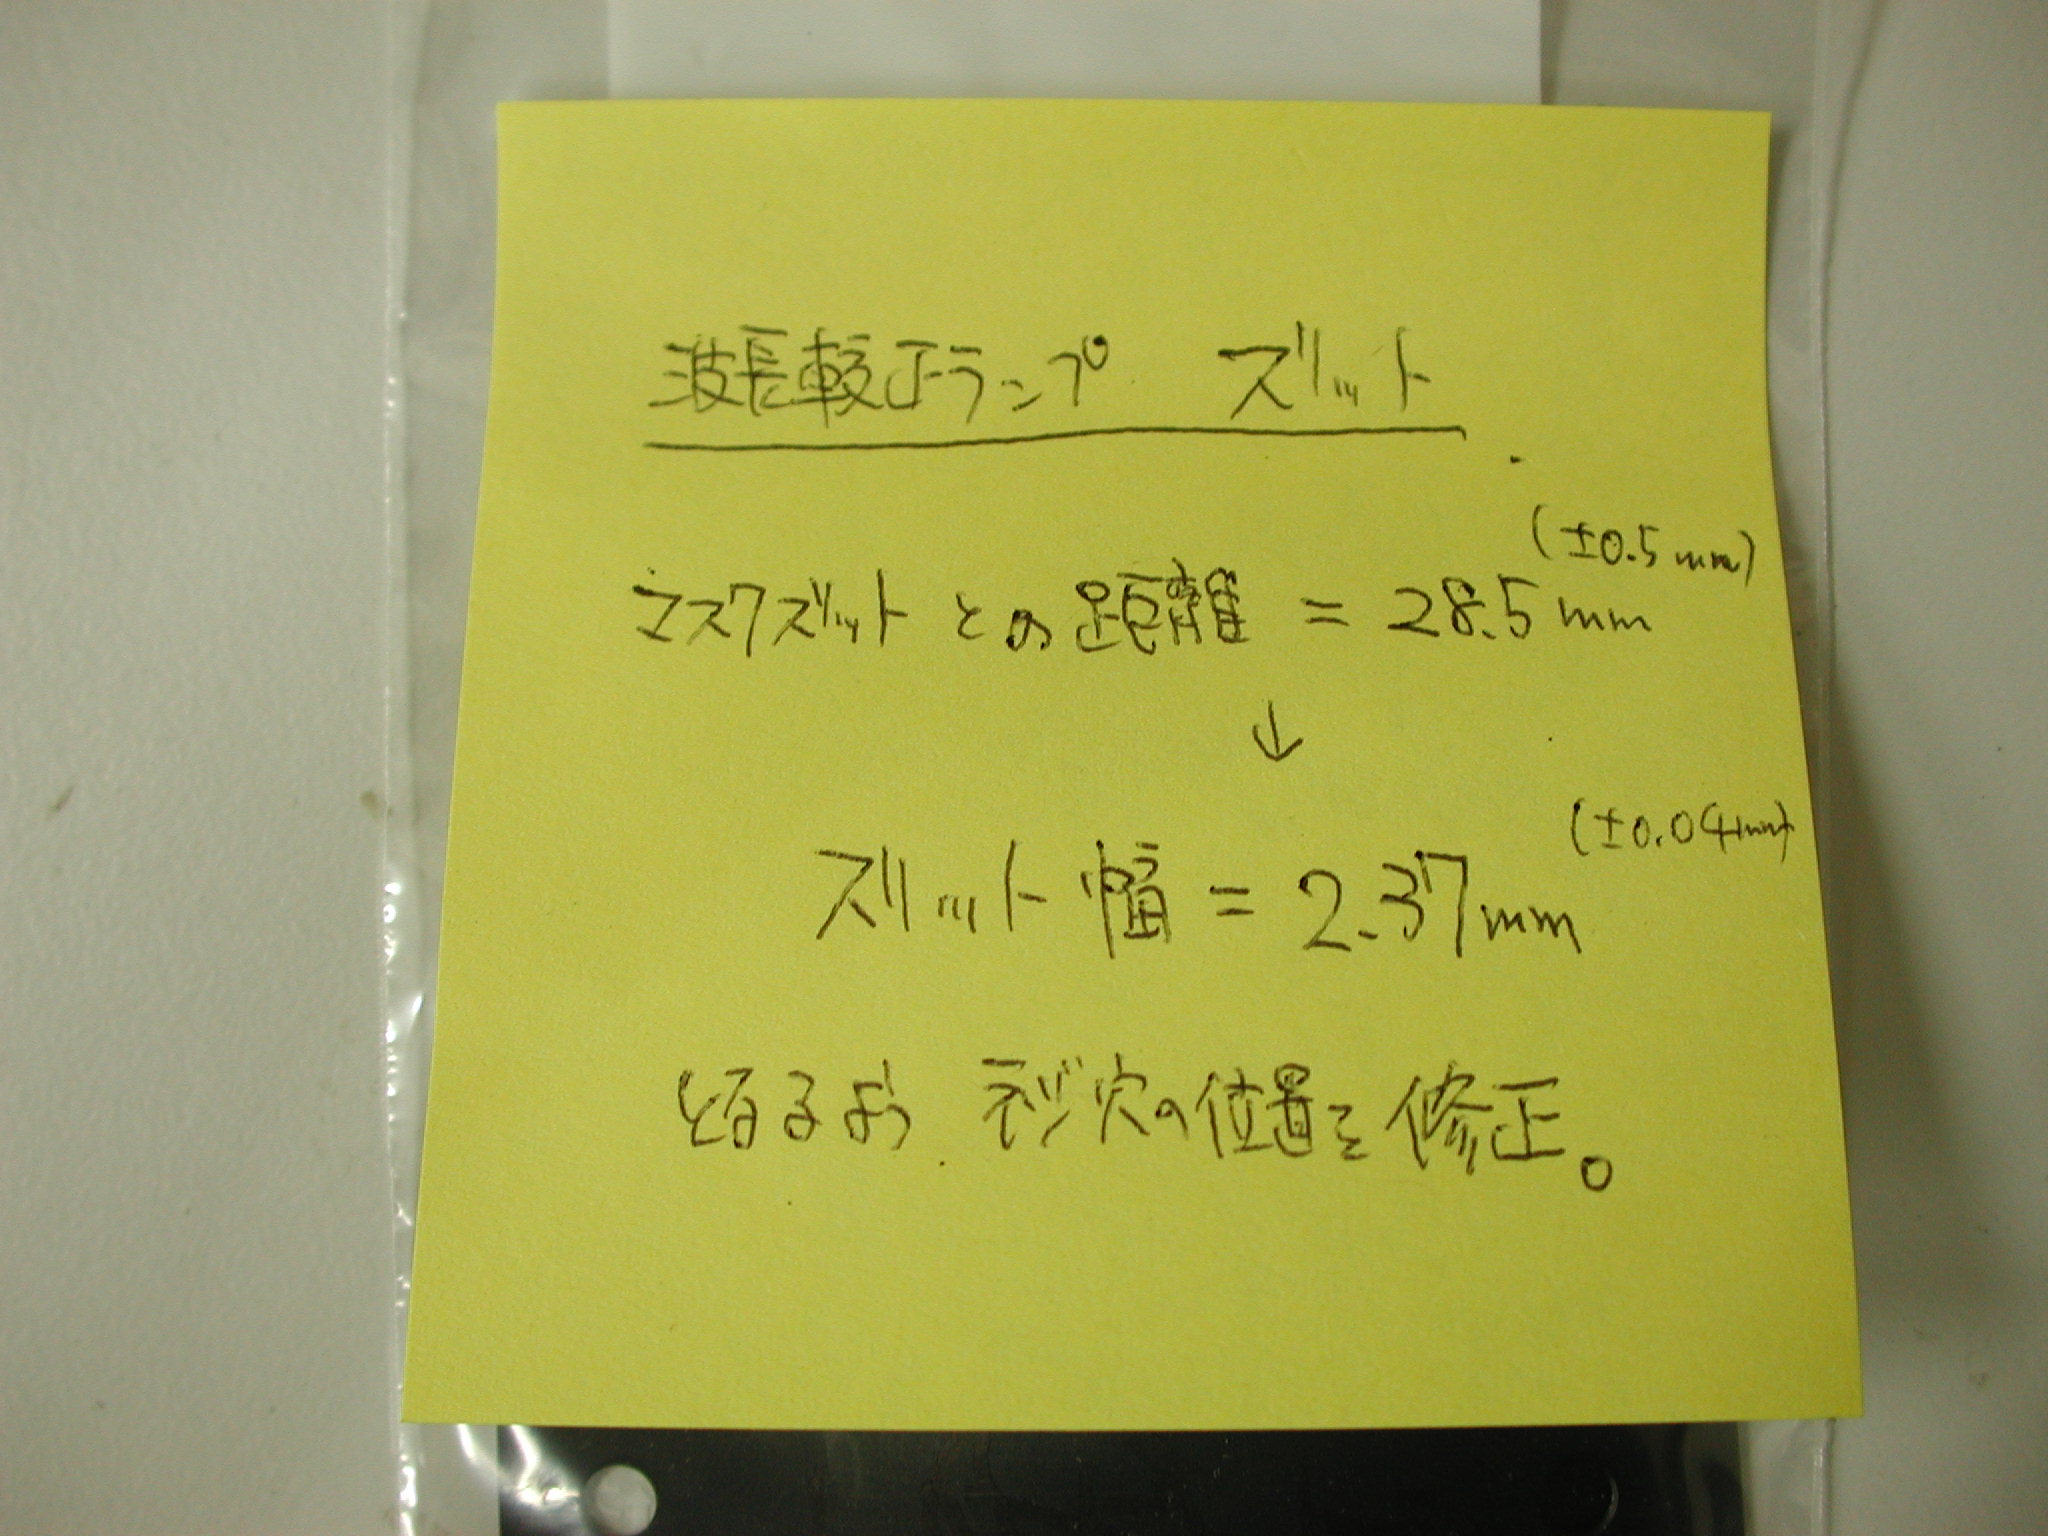 波長較正ランプ スリット
(±0.5mm)
マスクスリットとの距離 = 28.5mm
↓
(±0.04mm)
スリット幅 = 2.37mm
となるよう ネジ穴の位置を修正。